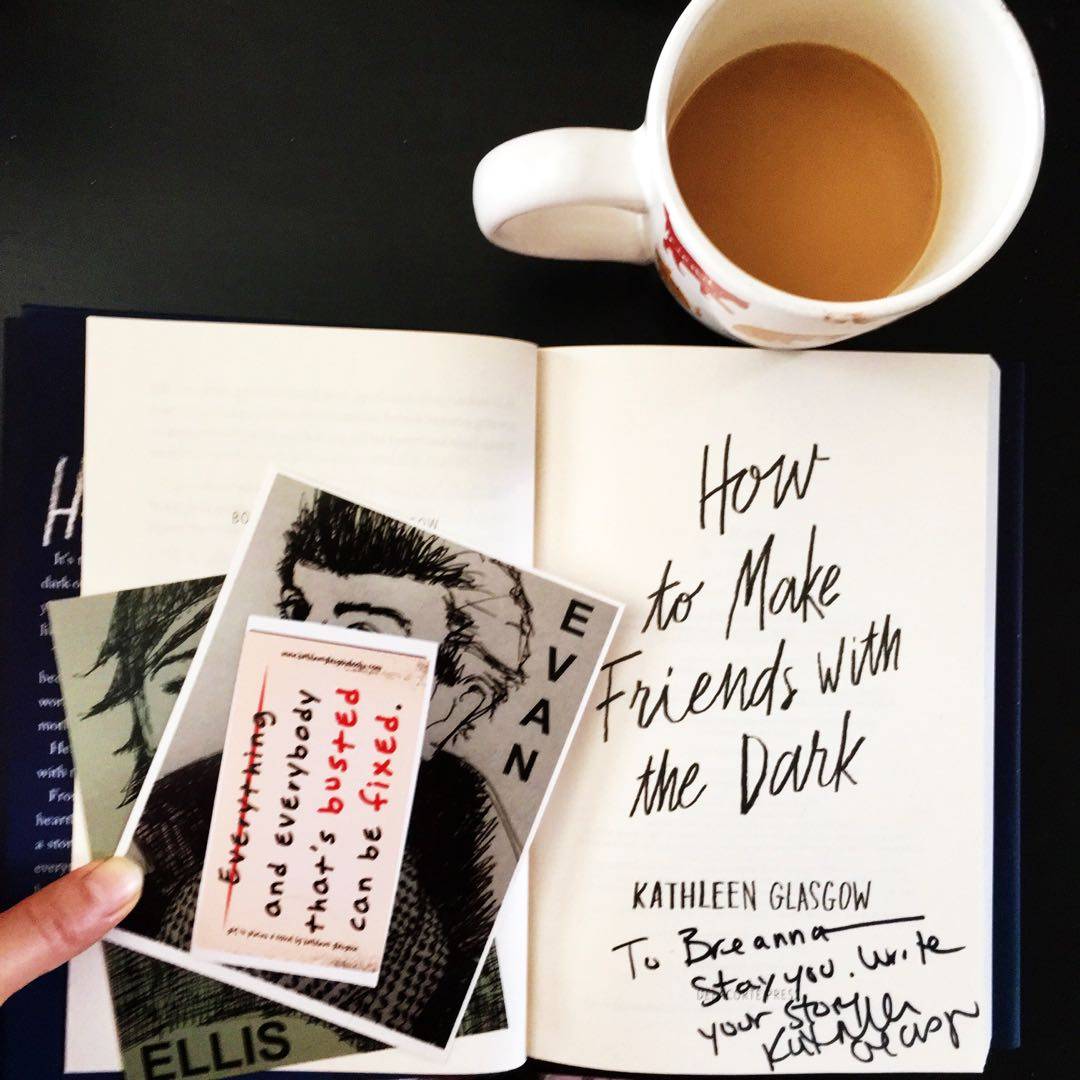 How
to Make
Friends with
the Dark
KATHLEEN GLASGOW
To Breanna
Stay you. Write
your story
Kathleen
Glasgow
EVAN
ELLIS
Everything
and everybody
that's busted
can be fixed.
girl in pieces a novel by kathleen glasgow
H
It's
dark
He
with